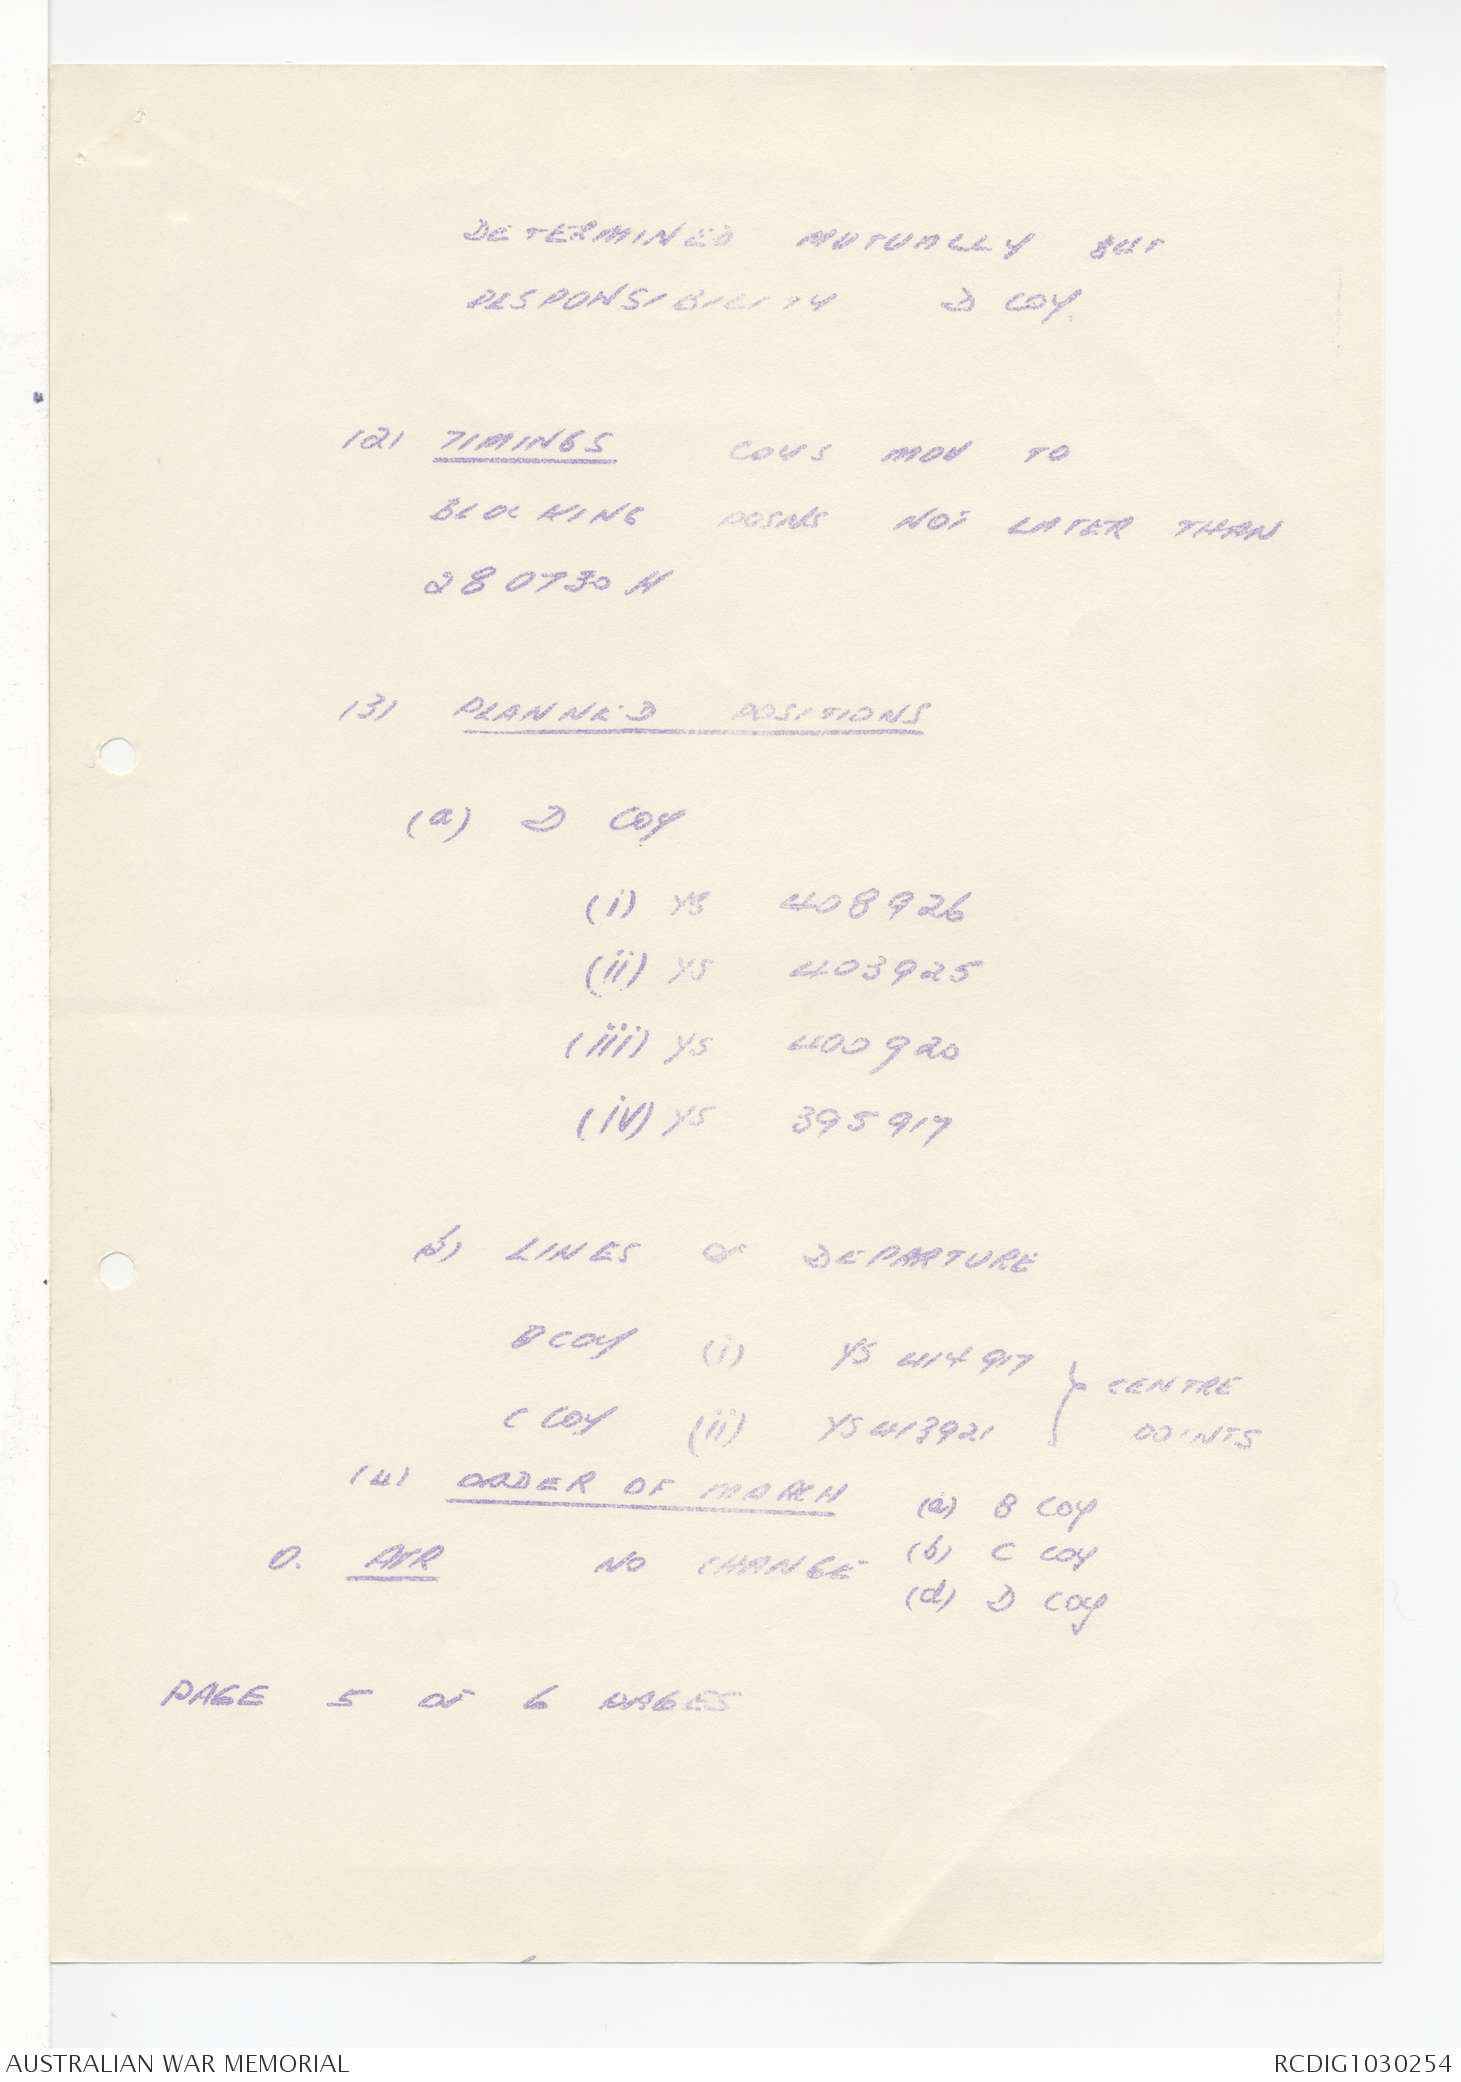 DETERMINED MUTUALLY BUT
RESPONSIBILITY D COY.
(2) TIMINGS COYS MOV TO
BLOCKING POSNS NOT LATER THAN
280730 H
(3) PLANNED POSITIONS
(a) D COY
(i) YS 408926
(ii) YS 403925
(iii) YS 400920
(iv) YS 395917
(b) LINES OF DEPARTURE
B COY (i) YS 414917 } CENTRE
C COY (ii) YS 413921 POINTS
(4) ORDER OF MARCH (a) B COY
(b) C COY
O. AIR NO CHANGE
(d) D COY
PAGE 5 OF 6 PAGES
AUSTRALIAN WAR MEMORIAL
RCDIG1030254